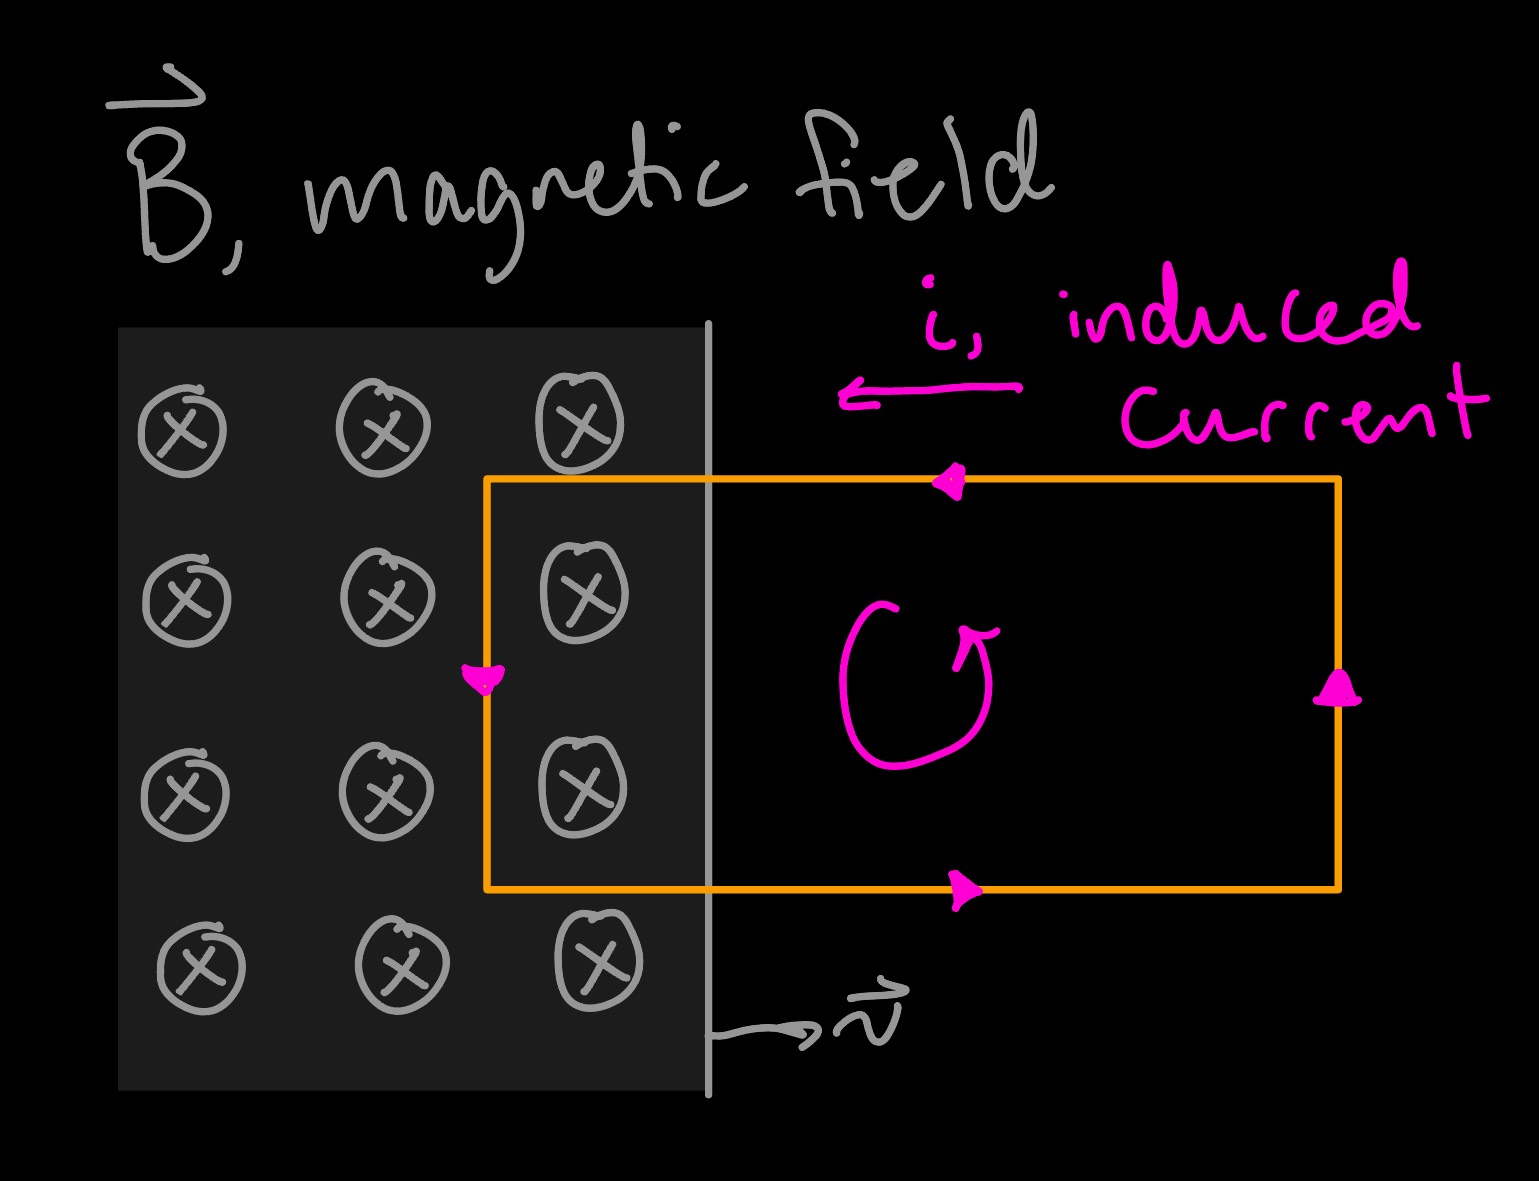 B⃗, magnetic field
i, induced
current
v⃗